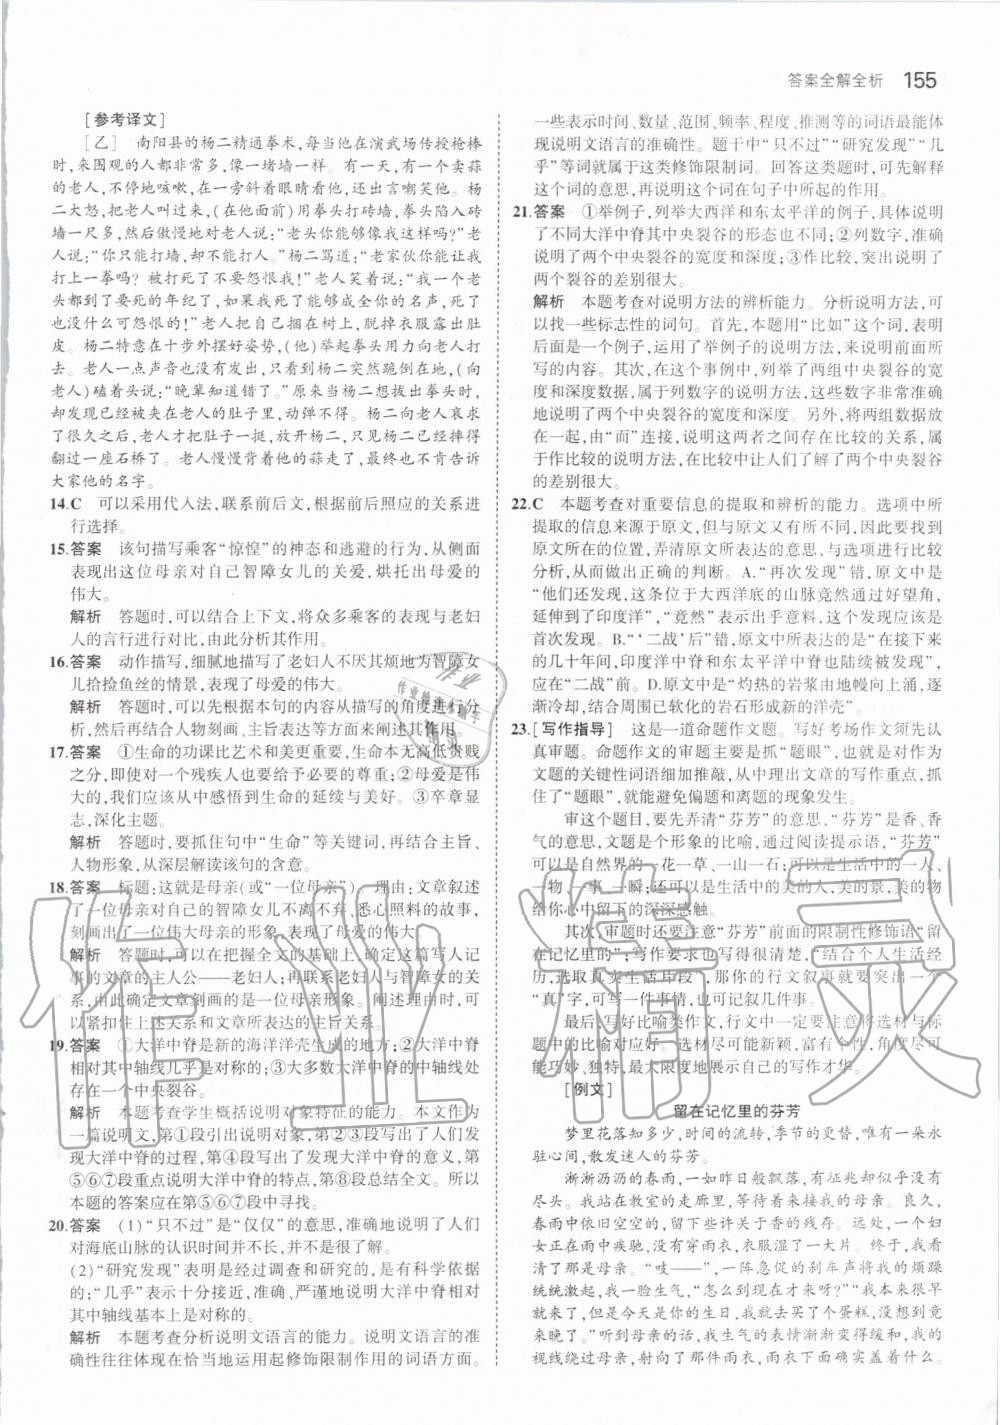 答案全解全析 155
[参考译文]
[乙] 南阳县的杨二精通拳术,每当他在演武场传授枪棒
时,来围观的人都非常多,像一堵墙一样。有一天,有一个卖蒜
的老人,不停地咳嗽,在一旁斜着眼睛看还出言嘲笑他。杨
二大怒,把老人叫过来,(在他面前)用拳头打砖墙,拳头陷入砖
墙一尺多,然后傲慢地对老人说:“老头你能够像我这样吗?”老
人说:“你只能打墙,却不能打人。”杨二骂道:“老家伙你能让我
打上一拳吗?被打死了不要怨恨我!”老人笑着说:“我一个老
头都到了要死的年纪了,如果能够成全你的名声,死了
也没什么可怨恨的!”老人把自己捆在树上,脱掉衣服露出肚
皮。杨二特意在十步外摆好姿势,(他)举起拳头用力向老人打
去。老人一点声音也没有,只看见杨二突然跪倒在地,(向
老人)磕着头说:“晚辈知道错了。”原来当杨二想拔出拳头时,
却发现已经被夹在老人的肚子里,动弹不得。杨二向老人哀求
了很久之后,老人才把肚子一挺,放开杨二,只见杨二已经摔得
翻过一座石桥了。老人慢慢背着他的蒜走了,最终也不肯告诉
大家他的名字。
14.C 可以采用代入法,联系前后文,根据前后照应的关系进
行选择。
15.答案 该句描写乘客“惊惶”的神态和逃避的行为,从侧面
表现出这位母亲对自己智障女儿的关爱,烘托出母爱的
伟大。
解析 答题时,可以结合上下文,将众多乘客的表现与老妇
人的言行进行对比,由此分析其作用。
16.答案 动作描写,细腻地描写了老妇人不厌其烦地为智障女
儿拾捡鱼丝的情景,表现了母爱的伟大。
解析 答题时,可以先依据本句的内容从描写的角度进行分
析,然后再结合人物刻画、主旨表达等方面来阐述其作用。
17.答案 ①生命的功课比艺术和美更重要,生命本无高低贵贱
之分,即使对一个残疾人也要给予必要的尊重;②母爱是伟
大的,我们应该从中感悟到生命的延续与美好。③卒章显
志,深化主题。
解析 答题时,要抓住句中“生命”等关键词,再结合主旨、
人物形象,从深层解读该句的含意。
18.答案 标题:这就是母亲(或“一位母亲”)。理由:文章叙述
了一位母亲对自己的智障女儿不离不弃、悉心照料的故事,
刻画出一位伟大母亲的形象,表现了母爱的伟大。
解析 答题时,可以在把握全文的基础上,确定这篇写人记
事的文章的主人公——老妇人;再联系老妇人与智障女儿的关
系,由此确定文章刻画的是一位母亲形象。阐述理由时,可以
紧扣住上述关系和文章所表达的主旨关系。
19.答案 ①大洋中脊是新的海洋洋壳生成的地方;②大洋中脊
相对其中轴线几乎是对称的;③大多数大洋中脊的中轴线处
存在一个中央裂谷。
解析 本题考查学生概括说明对象特征的能力。本文作为
一篇说明文,第①段引出说明对象,第②③段写出了人们发
现大洋中脊的过程,第④段写出了发现大洋中脊的意义,第
⑤⑥⑦段重点说明大洋中脊的特点,第⑧段总结全文。所以
本题的答案应在第⑤⑥⑦段中寻找。
20.答案 (1)“只不过”是“仅仅”的意思,准确地说明了人们
对海底山脉的认识时间并不长,并不是很了解。
(2)“研究发现”表明是经过调查和研究的,是有科学依据
的;“几乎”表示十分接近,准确、严谨地说明了大洋中脊相对
其中轴线基本上是对称的。
解析 本题考查分析说明文语言的能力。说明文语言的准
确性往往体现在恰当地运用起修饰限制作用的词语方面。
一些表示时间、数量、范围、频率、程度、推测等的词语最能体
现说明文语言的准确性。题干中“只不过”“研究发现”“几
乎”等词就属于这类修饰限制词。回答这类题时,可先解释
这个词的意思,再说明这个词在句子中所起的作用。
21.答案 ①举例子,列举大西洋和东太平洋的例子,具体说明
了不同大洋中脊其中央裂谷的形态也不同;②列数字,准确
说明了两个中央裂谷的宽度和深度;③作比较,突出说明了
两个裂谷的差别很大。
解析 本题考查对说明方法的辨析能力。分析说明方法,可
以找一些标志性的词句。首先,本题用“比如”这个词,表明
后面是一个例子,运用了举例子的说明方法来说明前面所
写的内容。其次,在这个事例中,列举了两组中央裂谷的宽
度和深度数据,属于列数字的说明方法,这些数据非常准确
地说明了两个中央裂谷的宽度和深度。另外,将两组数据放
在一起,由“而”连接,说明这两者之间存在比较的关系,属
于作比较的说明方法,在比较中让人们了解了两个中央裂谷
的差别很大。
22.C 本题考查对重要信息的提取和辨析的能力。选项中所
提取的信息来源于原文,但与原文又有所不同,因此要找到
原文所在的位置,弄清原文所表达的意思,与选项进行比较
分析,从而做出正确的判断。A.“再次发现”错,原文中的是
“他们还发现,这条位于大西洋底的山脉竟然通过好望角,
延伸到了印度洋”,“竟然”表示出乎意料,这个发现应该是
首次发现。B.“‘二战’后”错,原文中所表达的是“在接下来
的几十年间,印度洋中脊和东太平洋中脊也陆续被发现”,
应在“二战”前。D.原文中的是“灼热的岩浆由地幔向上涌,逐
渐冷却,结合周围已软化的岩石形成新的洋壳”。
23.[写作指导] 这是一道命题作文题。写好考场作文须先认
真审题。命题作文的审题主要是抓“题眼”,也就是对作为
文题的关键性词语细加推敲,从中理出文章的写作重点,抓
住了“题眼”,就能避免偏题和离题的现象发生。
审这个题目,要先弄清“芬芳”的意思。“芬芳”是香、香
气的意思,文题是个形象的比喻,通过阅读提示语,“芬芳”
可以是自然界的一花一草、一山一石;可以是生活中的一人、
一物、一事、一境,还可以是生活中的美的人,美的景,美的物
给你心中留下的深深感触。
其次,审题时还要注意“芬芳”前面的限制性修饰语“留
在记忆里的”;写作要求也写得很清楚,“结合个人生活经历,
选取真实生活片段”,那你的行文叙事就要突出一个
“真”字,可写一件事情,也可记叙几件事。
最后,写好比喻类作文,行文中一定要注意将选材与标
题中的比喻对应好。选材尽可能新颖,富有创意,角度尽可能
巧妙、独特,最大限度地展示自己的写作才华。
[例文]
留在记忆里的芬芳
梦里花落知多少,时间的流转,季节的更替,唯有一朵永
驻心间,散发迷人的芬芳。
淅淅沥沥的春雨,一如昨日般延绵,有征兆却似乎没有
尽头。我站在教室的走廊里,等待着来接我的母亲。良久,
春雨中依旧空空的,留我独享手指的残存。远处,一个妇
女正在雨中疾驰,没有穿雨衣,衣服湿了一大片。终于,我看
清了那是母亲。“吱——”,一阵急促的刹车声将我的烦躁
统统激起,“怎么这么晚到现在才来呀?”“本来很早就来了
的,但是今天是你的生日,我就去买了个蛋糕,没想到来
晚了。”听到母亲的话,我生气的表情渐渐变得缓和,我的
视线绕过母亲,射向了那件雨衣,雨衣下面确实盖着什么。